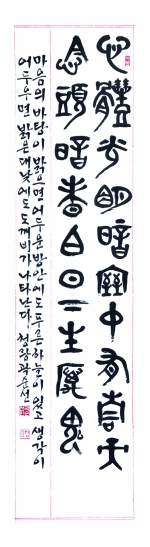 心體光明暗室中有靑天
念頭暗昧白日下生厲鬼
마음의 바탕이 밝으면 어두운 방안에도 푸른 하늘이 있고 생각이
어두우면 밝은 대낮에도 도깨비가 나타난다 곽순선